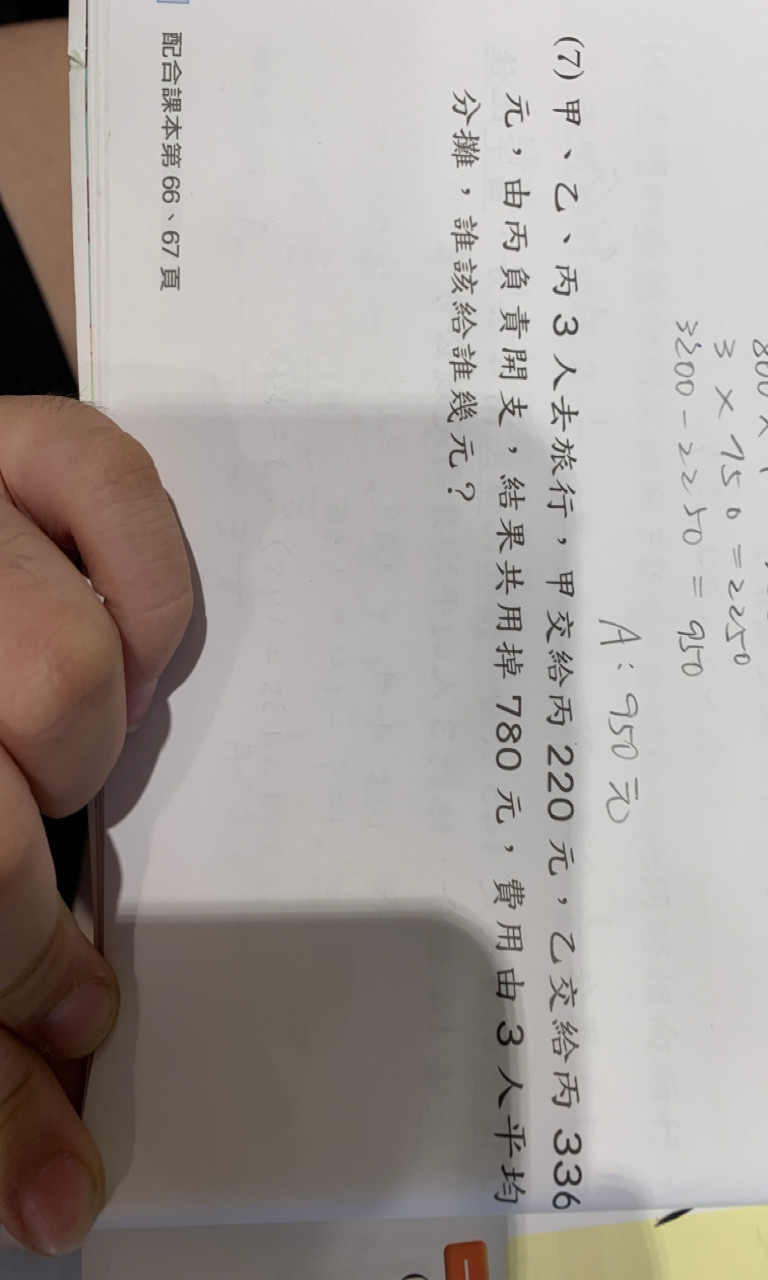 3 × 750 = 2250
3200 - 2250 = 950
A: 950元
(7) 甲、乙、丙 3 人去旅行，甲交給丙 220 元，乙交給丙 336
元，由丙負責開支，結果共用掉 780 元，費用由 3 人平均
分攤，誰該給誰幾元？
配合課本第 66、67 頁